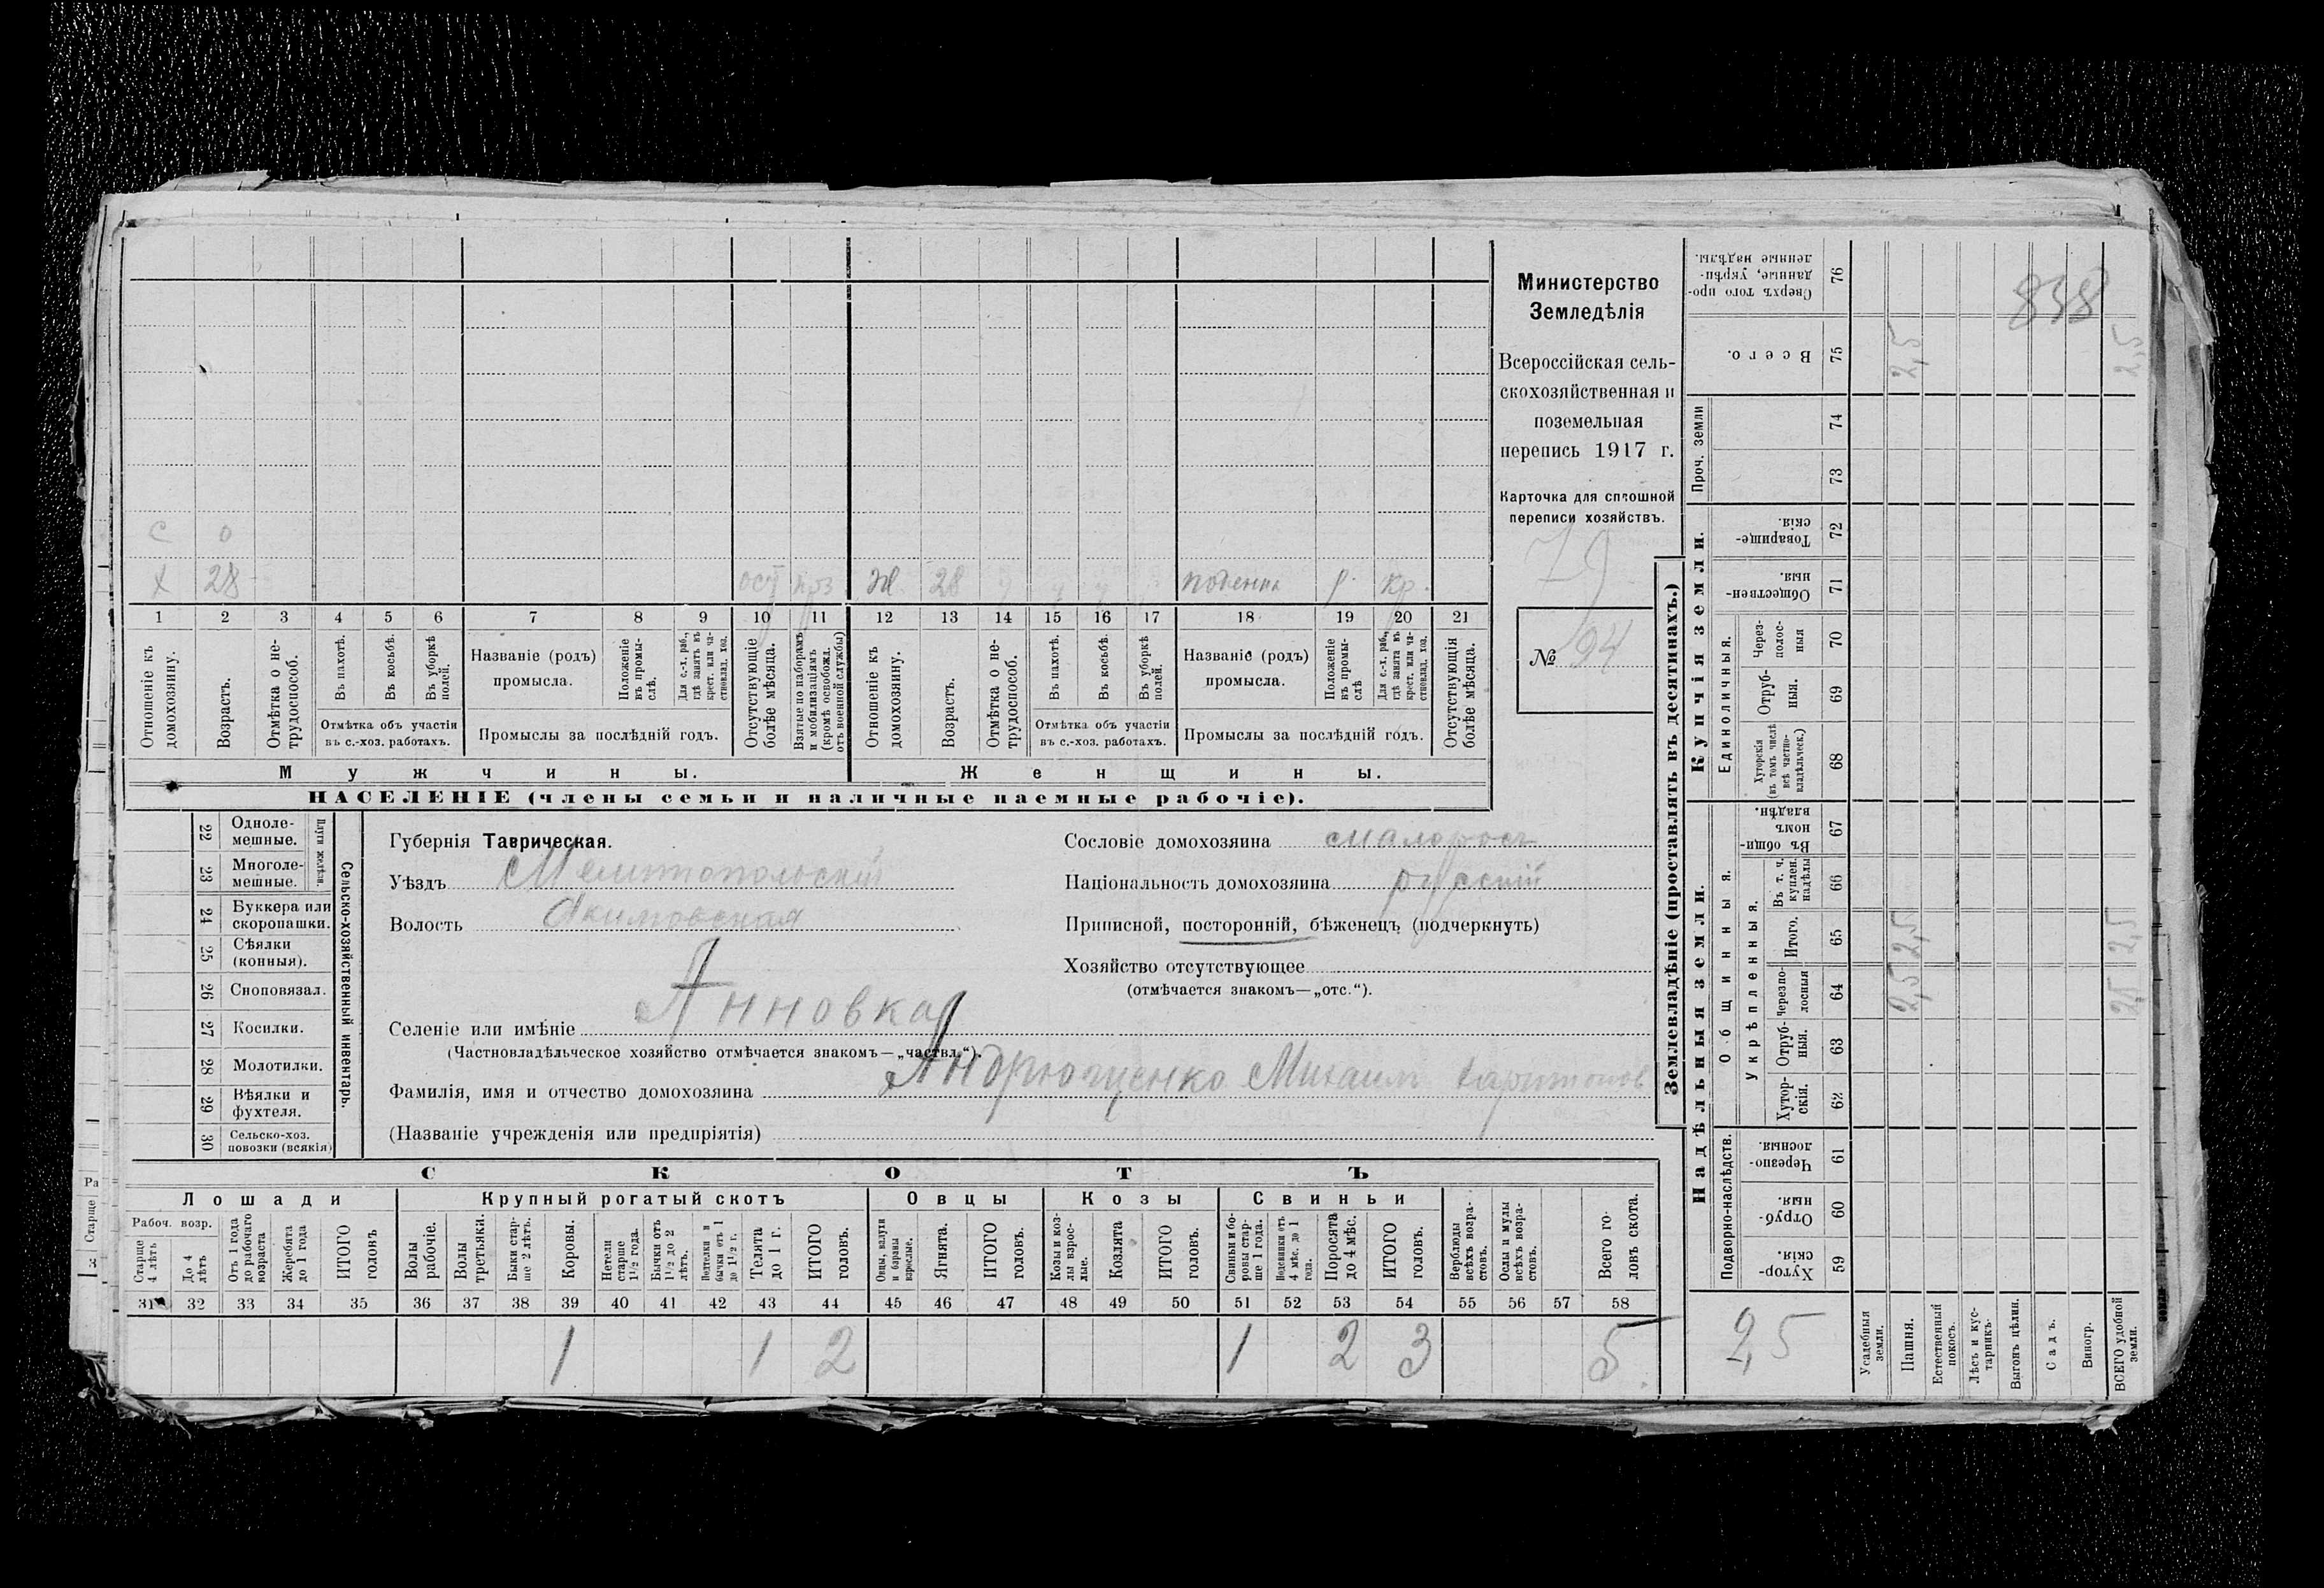 Министерство
Земледѣлія
Всероссійская сель-
скохозяйственная и
поземельная
перепись 1917 г.
Карточка для сплошной
переписи хозяйствъ.
№ 94
с 0
х 28 жЖ 28 поденна р. кр.
1 2 3 4 5 6 7 8 9 10 11 12 13 14 15 16 17 18 19 20 21
Отношеніе къ домохозяину.
Возрастъ.
Отмѣтка о не-трудоспособ.
Въ пахотѣ.
Въ косьбѣ.
Въ уборкѣ полей.
Отмѣтка объ участіи
въ с.-хоз. работахъ.
Названіе (родъ)
промысла.
Положеніе въ промы-слѣ.
Для с.-х. раб., гдѣ занятъ въ крест. или ча-стновлад. хоз.
Промыслы за послѣдній годъ.
Отсутствующіе болѣе мѣсяца.
Взятые по наборамъ и мобилизаціямъ (кромѣ освобожд. отъ военной службы)
Отношеніе къ домохозяину.
Возрастъ.
Отмѣтка о не-трудоспособ.
Въ пахотѣ.
Въ косьбѣ.
Въ уборкѣ полей.
Отмѣтка объ участіи
въ с.-хоз. работахъ.
Названіе (родъ)
промысла.
Положеніе въ промы-слѣ
Для с.-х. раб., гдѣ занята въ крест. или ча-стновлад. хоз.
Промыслы за послѣдній годъ.
Отсутствующія болѣе мѣсяца.
Мужчины.
Женщины.
НАСЕЛЕНІЕ (члены семьи и наличные наемные рабочіе).
22 Одноле-мешные.
23 Многоле-мешные.
Плуги желѣзн.
24 Буккера или скоропашки.
25 Сѣялки (конныя).
26 Сноповязал.
27 Косилки.
28 Молотилки.
29 Вѣялки и фухтеля.
30 Сельско-хоз. повозки (всякія)
Сельско-хозяйственный инвентарь.
Губернія Таврическая.
Уѣздъ Мелитопольскій
Волость Акимовская
Селеніе или имѣніе Анновка
(Частновладѣльческое хозяйство отмѣчается знакомъ—„частвл.“).
Фамилія, имя и отчество домохозяина Андрющенко Михаилъ Харитонов
(Названіе учрежденія или предпріятія)
Сословіе домохозяина малоросъ
Національность домохозяина русскій
Приписной, посторонній, бѣженецъ (подчеркнуть)
Хозяйство отсутствующее
(отмѣчается знакомъ—„отс.“).
СКОТЪ
Лошади
Крупный рогатый скотъ
Овцы
Козы
Свиньи
Рабоч. возр.
Старше 4 лѣтъ
До 4 лѣтъ
Отъ 1 года до рабочаго возраста
Жеребята до 1 года
ИТОГО головъ
Волы рабочіе.
Волы третьяки.
Быки стар-ше 2 лѣтъ.
Коровы.
Нетели старше 1 1/2 года.
Бычки отъ 1 1/2 до 2 лѣтъ.
Подтелки и бычки отъ 1 до 1 1/2 г.
Телята до 1 г.
ИТОГО головъ.
Овцы, валухи и бараны взрослые.
Ягнята.
ИТОГО головъ.
Козы и коз-лы взрос-лые.
Козлята
ИТОГО головъ.
Свиньи и бо-ровы стар-ше 1 года.
Подсвинки отъ 4 мѣс. до 1 года.
Поросята до 4 мѣс.
ИТОГО головъ.
Верблюды всѣхъ возра-стовъ.
Ослы и мулы всѣхъ возра-стовъ.
Всего го-ловъ скота.
31 32 33 34 35 36 37 38 39 40 41 42 43 44 45 46 47 48 49 50 51 52 53 54 55 56 57 58
1 1 2 1 2 3 5
Землевладѣніе (проставлять въ десятинахъ.)
Надѣльныя земли.
Купчія земли.
Проч. земли
Подворно-наслѣдств.
Общинныя.
Укрѣпленныя.
Единоличныя.
59 Хутор-скія.
60 Отруб-ныя.
61 Черезпо-лосныя.
62 Хутор-скія.
63 Отруб-ныя.
64 Черезпо-лосныя
65 Итого.
66 Въ т. ч. куплен. надѣлы
67 Въ общи-номъ владѣн.
68 Хуторскія (въ томъ числѣ всѣ частно-владѣльческ.)
69 Отруб-ныя.
70 Черезполос-ныя
71 Обществен-ныя.
72 Товарище-скія.
73
74
75 Всего.
76 Сверхъ того про-данные, укрѣп-ленные надѣлы.
Усадебныя земли.
Пашня. 2,5 2,5 2,5
Естественный покосъ.
Лѣсъ и кус-тарникъ.
Выгонъ цѣлин.
Садъ.
Виногр.
ВСЕГО удобной земли. 2,5 2,5 2,5
2,5
838